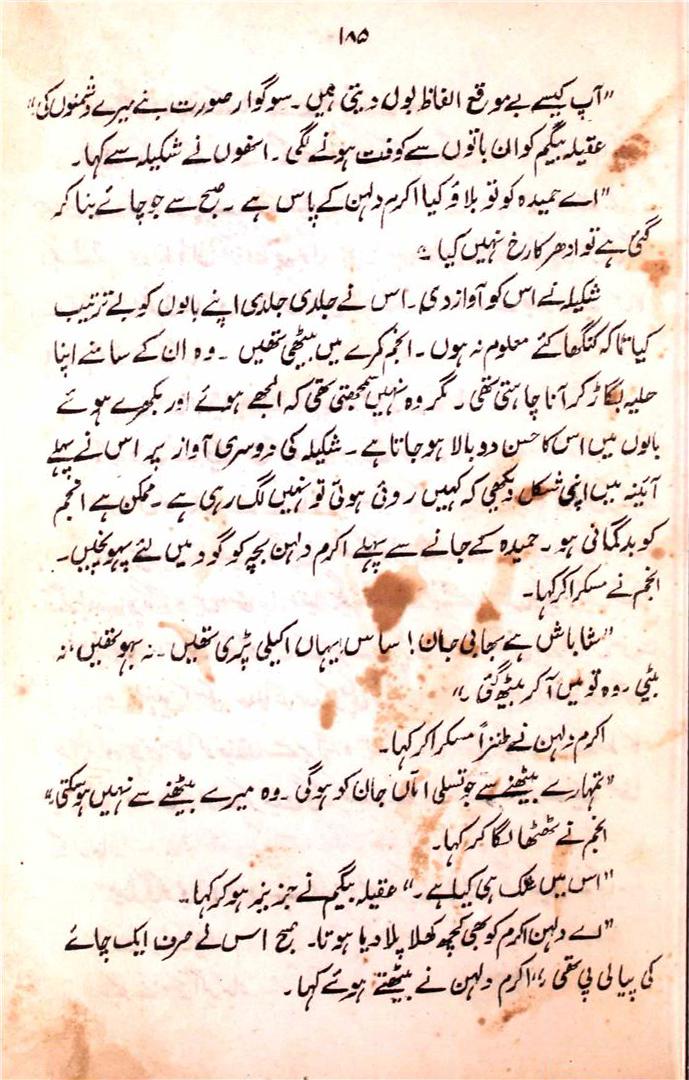 ۱۸۵
"آپ کیسے بے موقع الفاظ بول دیتی ہیں۔ سوگوار صورت بنے میرے دشمنوں کی"
عقیلہ بیگم کو ان باتوں سے کوفت ہونے لگی۔ اسفوں نے شکیلہ سے کہا۔
"اے حمیدہ کو تو بلاؤ کیا اکرم دلہن کے پاس ہے۔ صبح سے جو چائے بنا کر
گئی ہے تو ادھر کا رخ نہیں کیا۔"
شکیلہ نے اس کو آواز دی۔ اس نے جلدی جلدی اپنے بالوں کو بے ترتیب
کیا تاکہ کنگھا کئے معلوم نہ ہوں۔ انجم کمرے میں بیٹھی تھیں۔ وہ ان کے سامنے اپنا
حلیہ بگاڑ کر آنا چاہتی تھی۔ مگر وہ نہیں سمجھتی تھی کہ الجھے ہوئے اور بکھرے ہوئے
بالوں میں اس کا حسن دوبالا ہو جاتا ہے۔ شکیلہ کی دوسری آواز پر اس نے پہلے
آئینہ میں اپنی شکل دیکھی کہ کہیں روئی ہوئی تو نہیں لگ رہی ہے۔ ممکن ہے انجم
کو بدگمانی ہو۔ حمیدہ کے جانے سے پہلے اکرم دلہن بچہ کو گود میں لئے پہونچیں۔
انجم نے مسکرا کر کہا۔
"شاباش ہے بھابی جان! ساس یہاں اکیلی پڑی تھیں۔ نہ بہو تھیں، نہ
بیٹی۔ وہ تو میں آ کر بیٹھ گئی۔"
اکرم دلہن نے طنزاً مسکرا کر کہا۔
"تمہارے بیٹھنے سے جو تسلی اماں جان کو ہوگی۔ وہ میرے بیٹھنے سے نہیں ہو سکتی"
انجم نے ٹھٹھا لگا کر کہا۔
"اس میں شک ہی کیا ہے۔" عقیلہ بیگم نے جزبز ہو کر کہا۔
"اے دلہن اکرم کو بھی کچھ کھلا پلا دیا ہوتا۔ صبح اس نے صرف ایک چائے
کی پیالی پی تھی" اکرم دلہن نے بیٹھتے ہوئے کہا۔